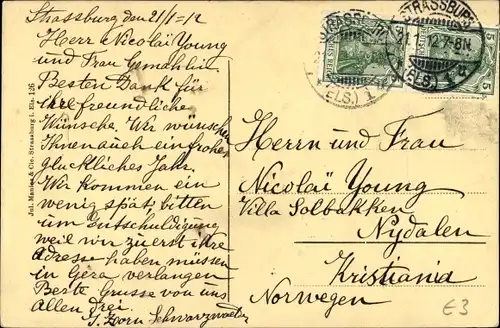 Strassburg den 21/1-12
Herr Nicolaï Young
und Frau Gemahlin.
Besten Dank für
ihre freundliche
Wünsche. Wir wünschen
Ihnen auch ein frohes
glückliches Jahr.
Wir kommen ein
wenig spät, bitten
um Entschuldigung
weil wir zu erst ihre
Adresse haben müssen
in Gera verlangen
Beste Grusse von uns
allen drei.
J. Zorn
Jul. Manias & Cie. Strassburg i. Els. 126
STRASSBURG
(ELS.) 1
STRASSBURG
1.12.7-8N.
(ELS.) 1
5
5
Herrn und Frau
Nicolaï Young
Villa Solbakken
Nydalen
Kristiania
Norwegen
£3